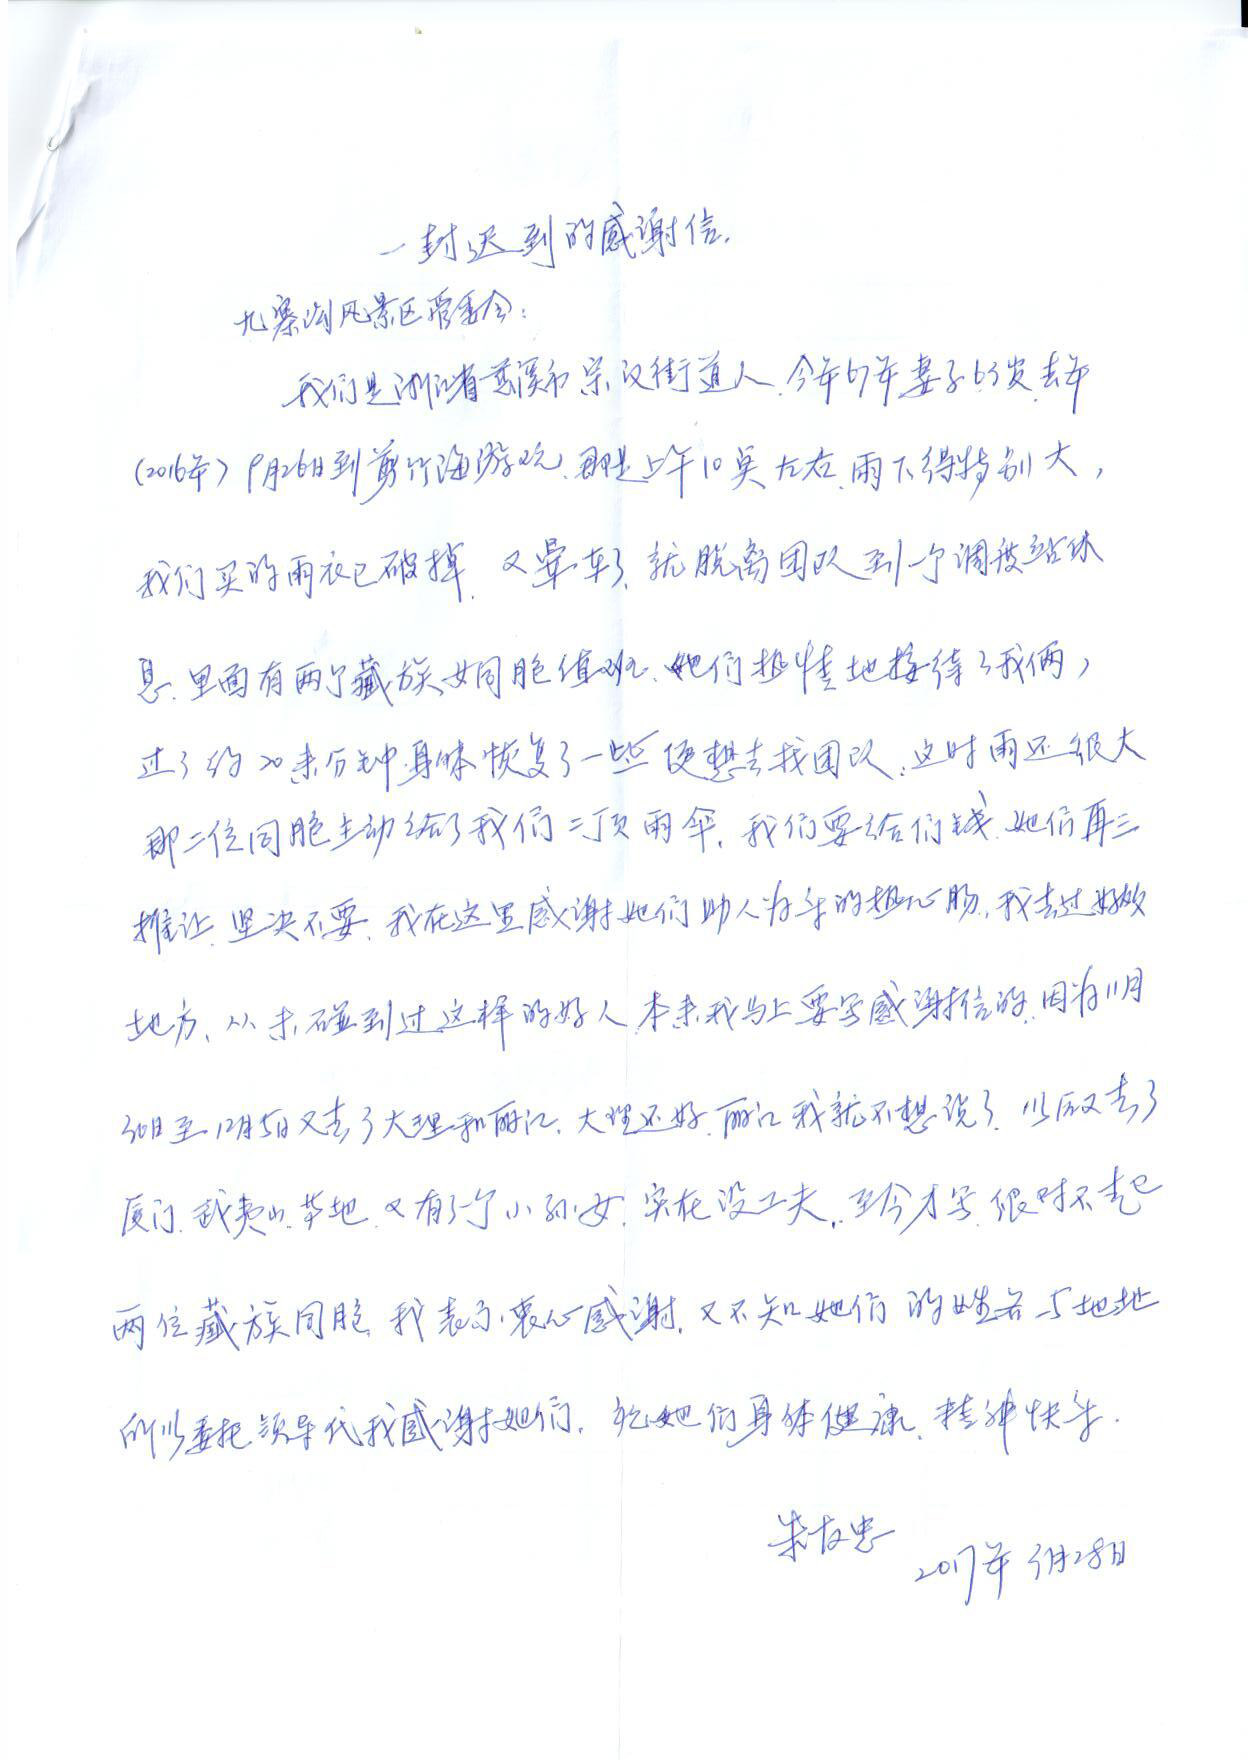 一封迟到的感谢信.
九寨沟风景区管委会:
我们是浙江省慈溪市宗汉街道人.今年67年妻子63岁.去年
(2016年)9月26日到剪竹海游玩.那是上午10奌左右.雨下得特别大,
我们买的雨衣已破掉.又晕车了.就脱离团队到一个调度站休
息.里面有两个藏族女同胞值班.她们热情地接待了我俩,
过了约20来分钟.身体恢复了一些便想去找团队.这时雨还很大
那二位同胞主动给了我们二顶雨伞.我们要给们钱.她们再三
推让.坚决不要.我在这里感谢她们助人为乐的热心肠.我去过好
地方.从未碰到过这样的好人.本来我马上要写感谢信的.因为11月
30日至12月5日又去了大理和丽江.大理还好.丽江我就不想说了.以后又去了
厦门.武夷山.等地.又有了个小孙女.实在没工夫.至今才写.很对不起
两位藏族同胞.我表示衷心感谢.又不知她们的姓名与地址
所以委托领导代我感谢她们.祝她们身体健康.精神快乐.
朱友忠
2017年 月28日